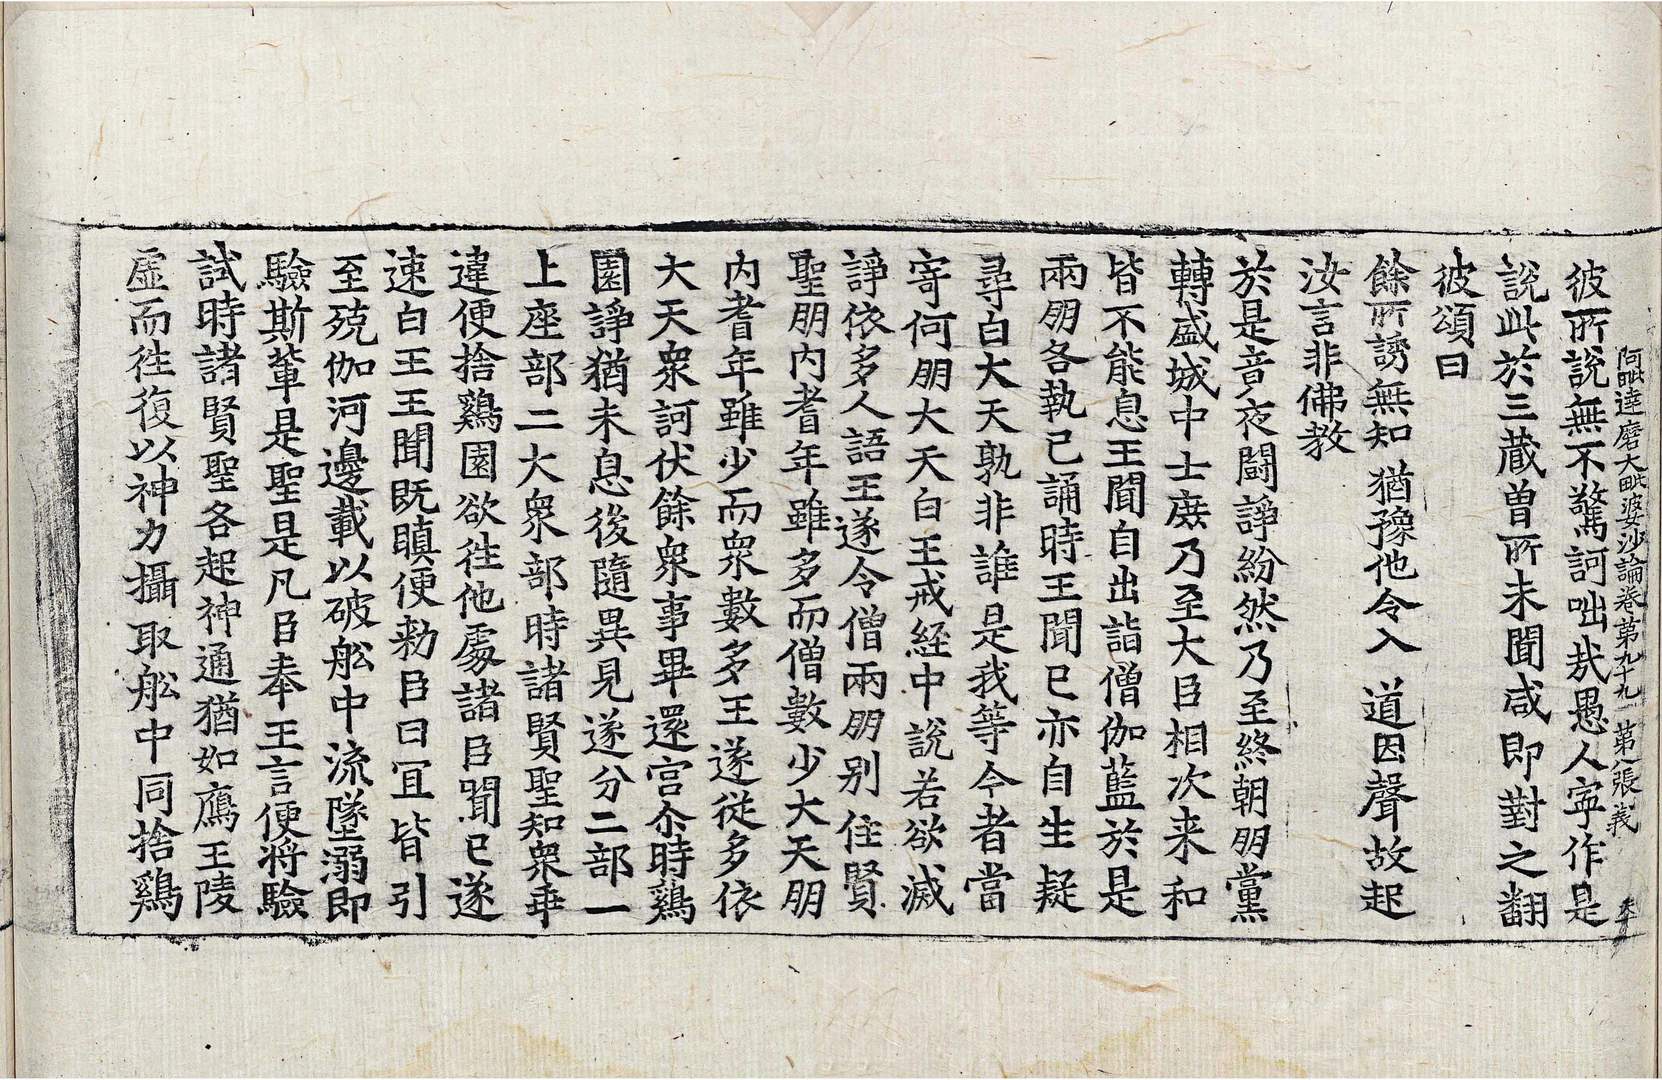 阿毗達磨大毗婆沙論卷第九十九　第八張　義
彼所說無不驚訶咄哉愚人寧作是
說此於三藏曾所未聞咸即對之翻
彼頌曰
餘所誘無知　猶豫他令入　道因聲故起
汝言非佛教
於是竟夜鬪諍紛然乃至終朝朋黨
轉盛城中士庶乃至大臣相次來和
皆不能息王聞自出詣僧伽藍於是
兩朋各執己誦時王聞已亦自生疑
尋白大天孰非誰是我等今者當
寄何朋大天白王戒經中說若欲滅
諍依多人語王遂令僧兩朋別住賢
聖朋內耆年雖多而僧數少大天朋
內耆年雖少而眾數多王遂從多依
大天眾訶伏餘眾事畢還宮尒時鷄
園諍猶未息後隨異見遂分二部一
上座部二大衆部時諸賢聖知衆乖
違便捨鷄園欲往他處諸臣聞已遂
速白王王聞旣瞋便勑臣曰冝皆引
至殑伽河邊載以破舩中流墜溺即
驗斯輩是聖是凡臣奉王言便將驗
試時諸賢聖各起神通猶如鴈王陵
虛而往復以神力攝取舩中同捨鷄